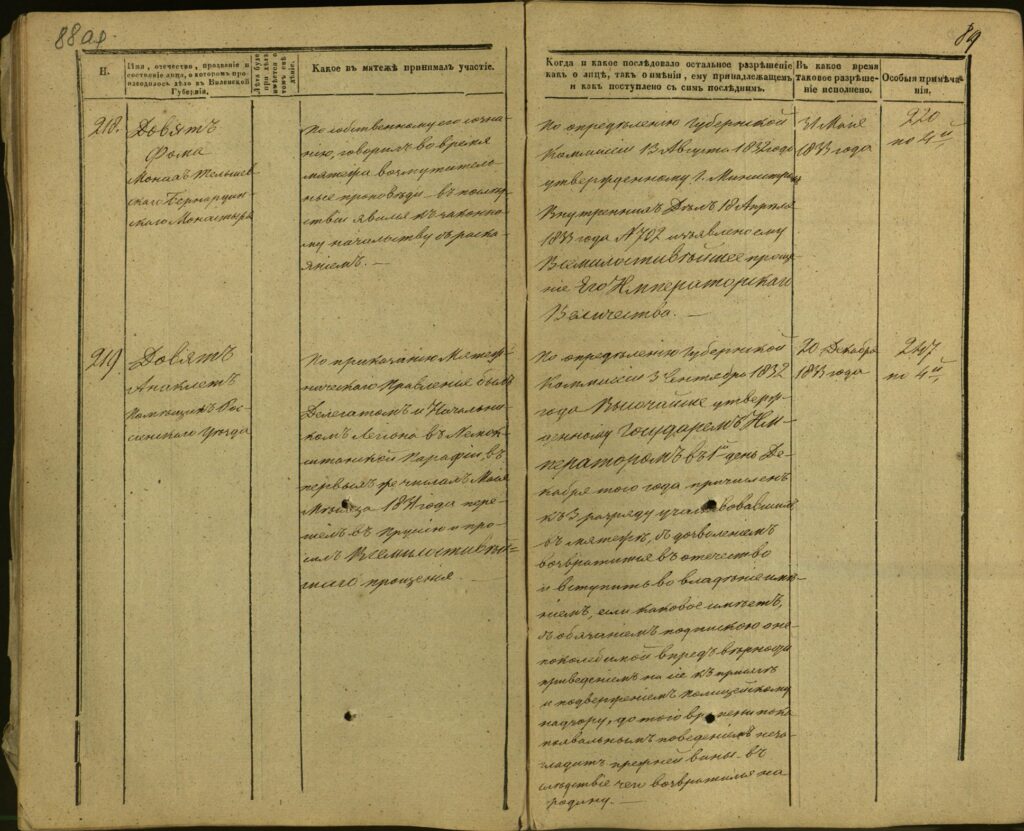 88 об.
89
Н.
Имя, отечество, прозваніе и
состояніе лица, о которомъ про-
изводилось дѣло въ Виленской
Губерніи.
Лѣта буде
при дѣлѣ
имѣется о
томъ свѣ-
дѣніе.
Какое въ мятежѣ принималъ участіе.
Когда и какое послѣдовало остальное разрѣшеніе
какъ о лицѣ, такъ о имѣніи, ему принадлежащемъ
и какъ поступлено съ симъ послѣднимъ.
Въ какое время
таковое разрѣше-
ніе исполнено.
Особыя примѣча-
нія.
218.
Довятъ
Фома
Монахъ Тельшев
скаго Бернардин-
скаго Монастыря
По собственному его созна-
нію, говорилъ во время
мятежа возмутитель-
ные проповѣди – въ послѣд-
ствіи явился къ законно-
му начальству съ раска-
яніемъ. —
По опредѣленію Губернской
Коммиссіи 13 Августа 1832 года
утвержденному Г. Министромъ
Внутреннихъ Дѣлъ 18 Апрѣля
1833 года № 702 изъявлено ему
Всемилостивѣйшее проще-
ніе Его Императорскаго
Величества. —
31 Мая
1833 года
220
по 4й
219.
Довятъ
Анаклетъ
Помѣщикъ Рос-
сіенскаго Уѣзда
По приказанію Мятеж-
ническаго Правленія былъ
Делегатомъ и Начальни-
комъ Легіона въ Немок-
штанской Парафіи въ
первыхъ же числахъ Мая
Мѣсяца 1831 года пере-
шелъ въ Пруссію и про-
силъ Всемилостивѣй-
шаго прощенія —
По опредѣленію Губернской
Коммиссіи 3 Сентября 1832
года Высочайше утверж-
денному Государемъ Им-
ператоромъ въ 1й день Де-
кабря того года причисленъ
къ 3 разряду участвовавшихъ
въ мятежѣ, съ дозволеніемъ
возвратится въ отечество
и вступить во владѣніе имѣ-
ніемъ, если каковое имѣетъ,
съ обязаніемъ подпискою о не-
поколебимой впредь вѣрности
приведеніемъ на сіе къ присягѣ
и подверженіемъ полицейскому
надзору, до того времени пока
похвальнымъ поведеніемъ неза-
гладитъ прежней вины – въ
слѣдствіе чего возвратился на
родину. —
20 Декабря
1833 года
247
по 4й